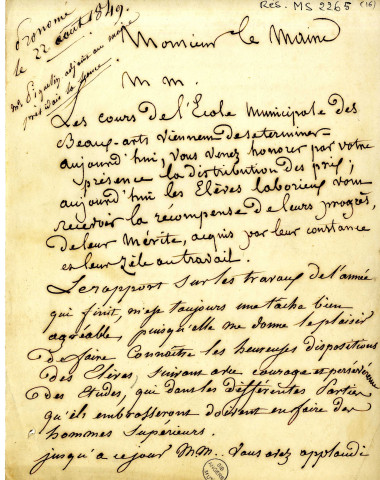 Res. MS 2265 (16)
Prononcé
le 22 août 1849.
Mr adjoint au maire
Monsieur le Maire
M M.
Les cours de l'Ecole Municipale des
Beaux-arts viennent de se terminer
aujourd'hui, vous venez honorer par votre
présence la distribution des prix;
aujourd'hui les Elèves laborieux vont
recevoir la recompense de leurs progrès,
de leur Mérite, acquis par leur constance
et leur zèle au travail.
Le rapport sur les travaux de l'année
qui finit, m'est toujours une tache bien
agréable, puisqu'elle me donne le plaisir
de faire Connaître les heureuses dispositions
des Elèves, suivant avec courage et perseverance
des Etudes, qui dans les différentes Parties
qu'ils embrasseront doivent en faire des
hommes Supérieurs.
jusqu'à ce jour MM.. Vous avez applaudi